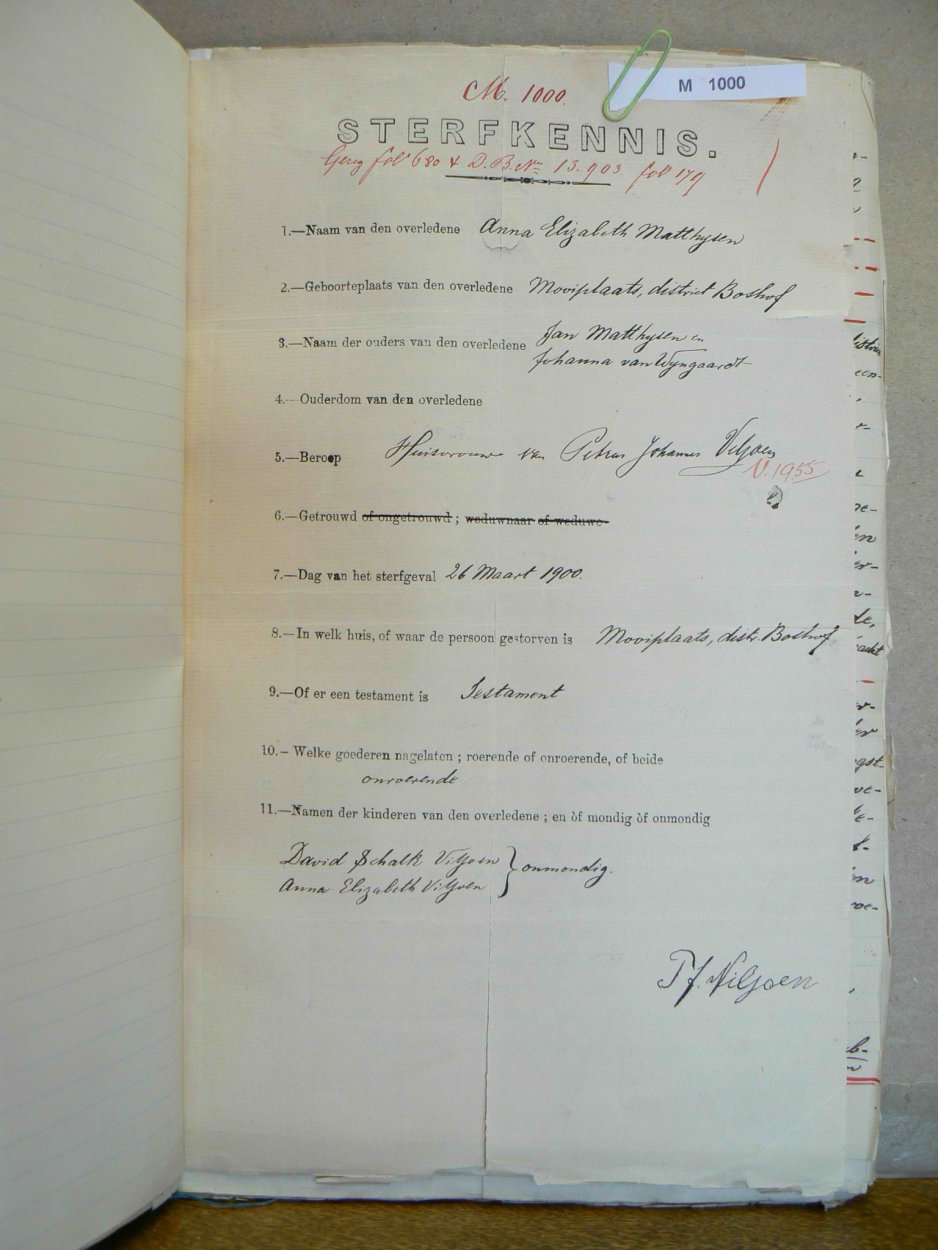 M 1000
M. 1000
STERFKENNIS.
fol 680 & D.B. No 13.903 fol 179
1.—Naam van den overledene Anna Elizabeth Matthysen
2.—Geboorteplaats van den overledene Mooiplaats, district Boshof
3.—Naam der ouders van den overledene Jan Matthysen en
Johanna van Wyngaardt
4.—Ouderdom van den overledene
5.—Beroep Huisvrouw van Petrus Johannes Viljoen
V. 1955
6.—Getrouwd of ongetrouwd ; weduwnaar of weduwe
7.—Dag van het sterfgeval 26 Maart 1900.
8.—In welk huis, of waar de persoon gestorven is Mooiplaats, distr. Boshof
9.—Of er een testament is Testament
10.—Welke goederen nagelaten ; roerende of onroerende, of beide
onroerende
11.—Namen der kinderen van den overledene ; en òf mondig òf onmondig
David Schalk Viljoen
Anna Elizabeth Viljoen } onmondig.
P J. Viljoen